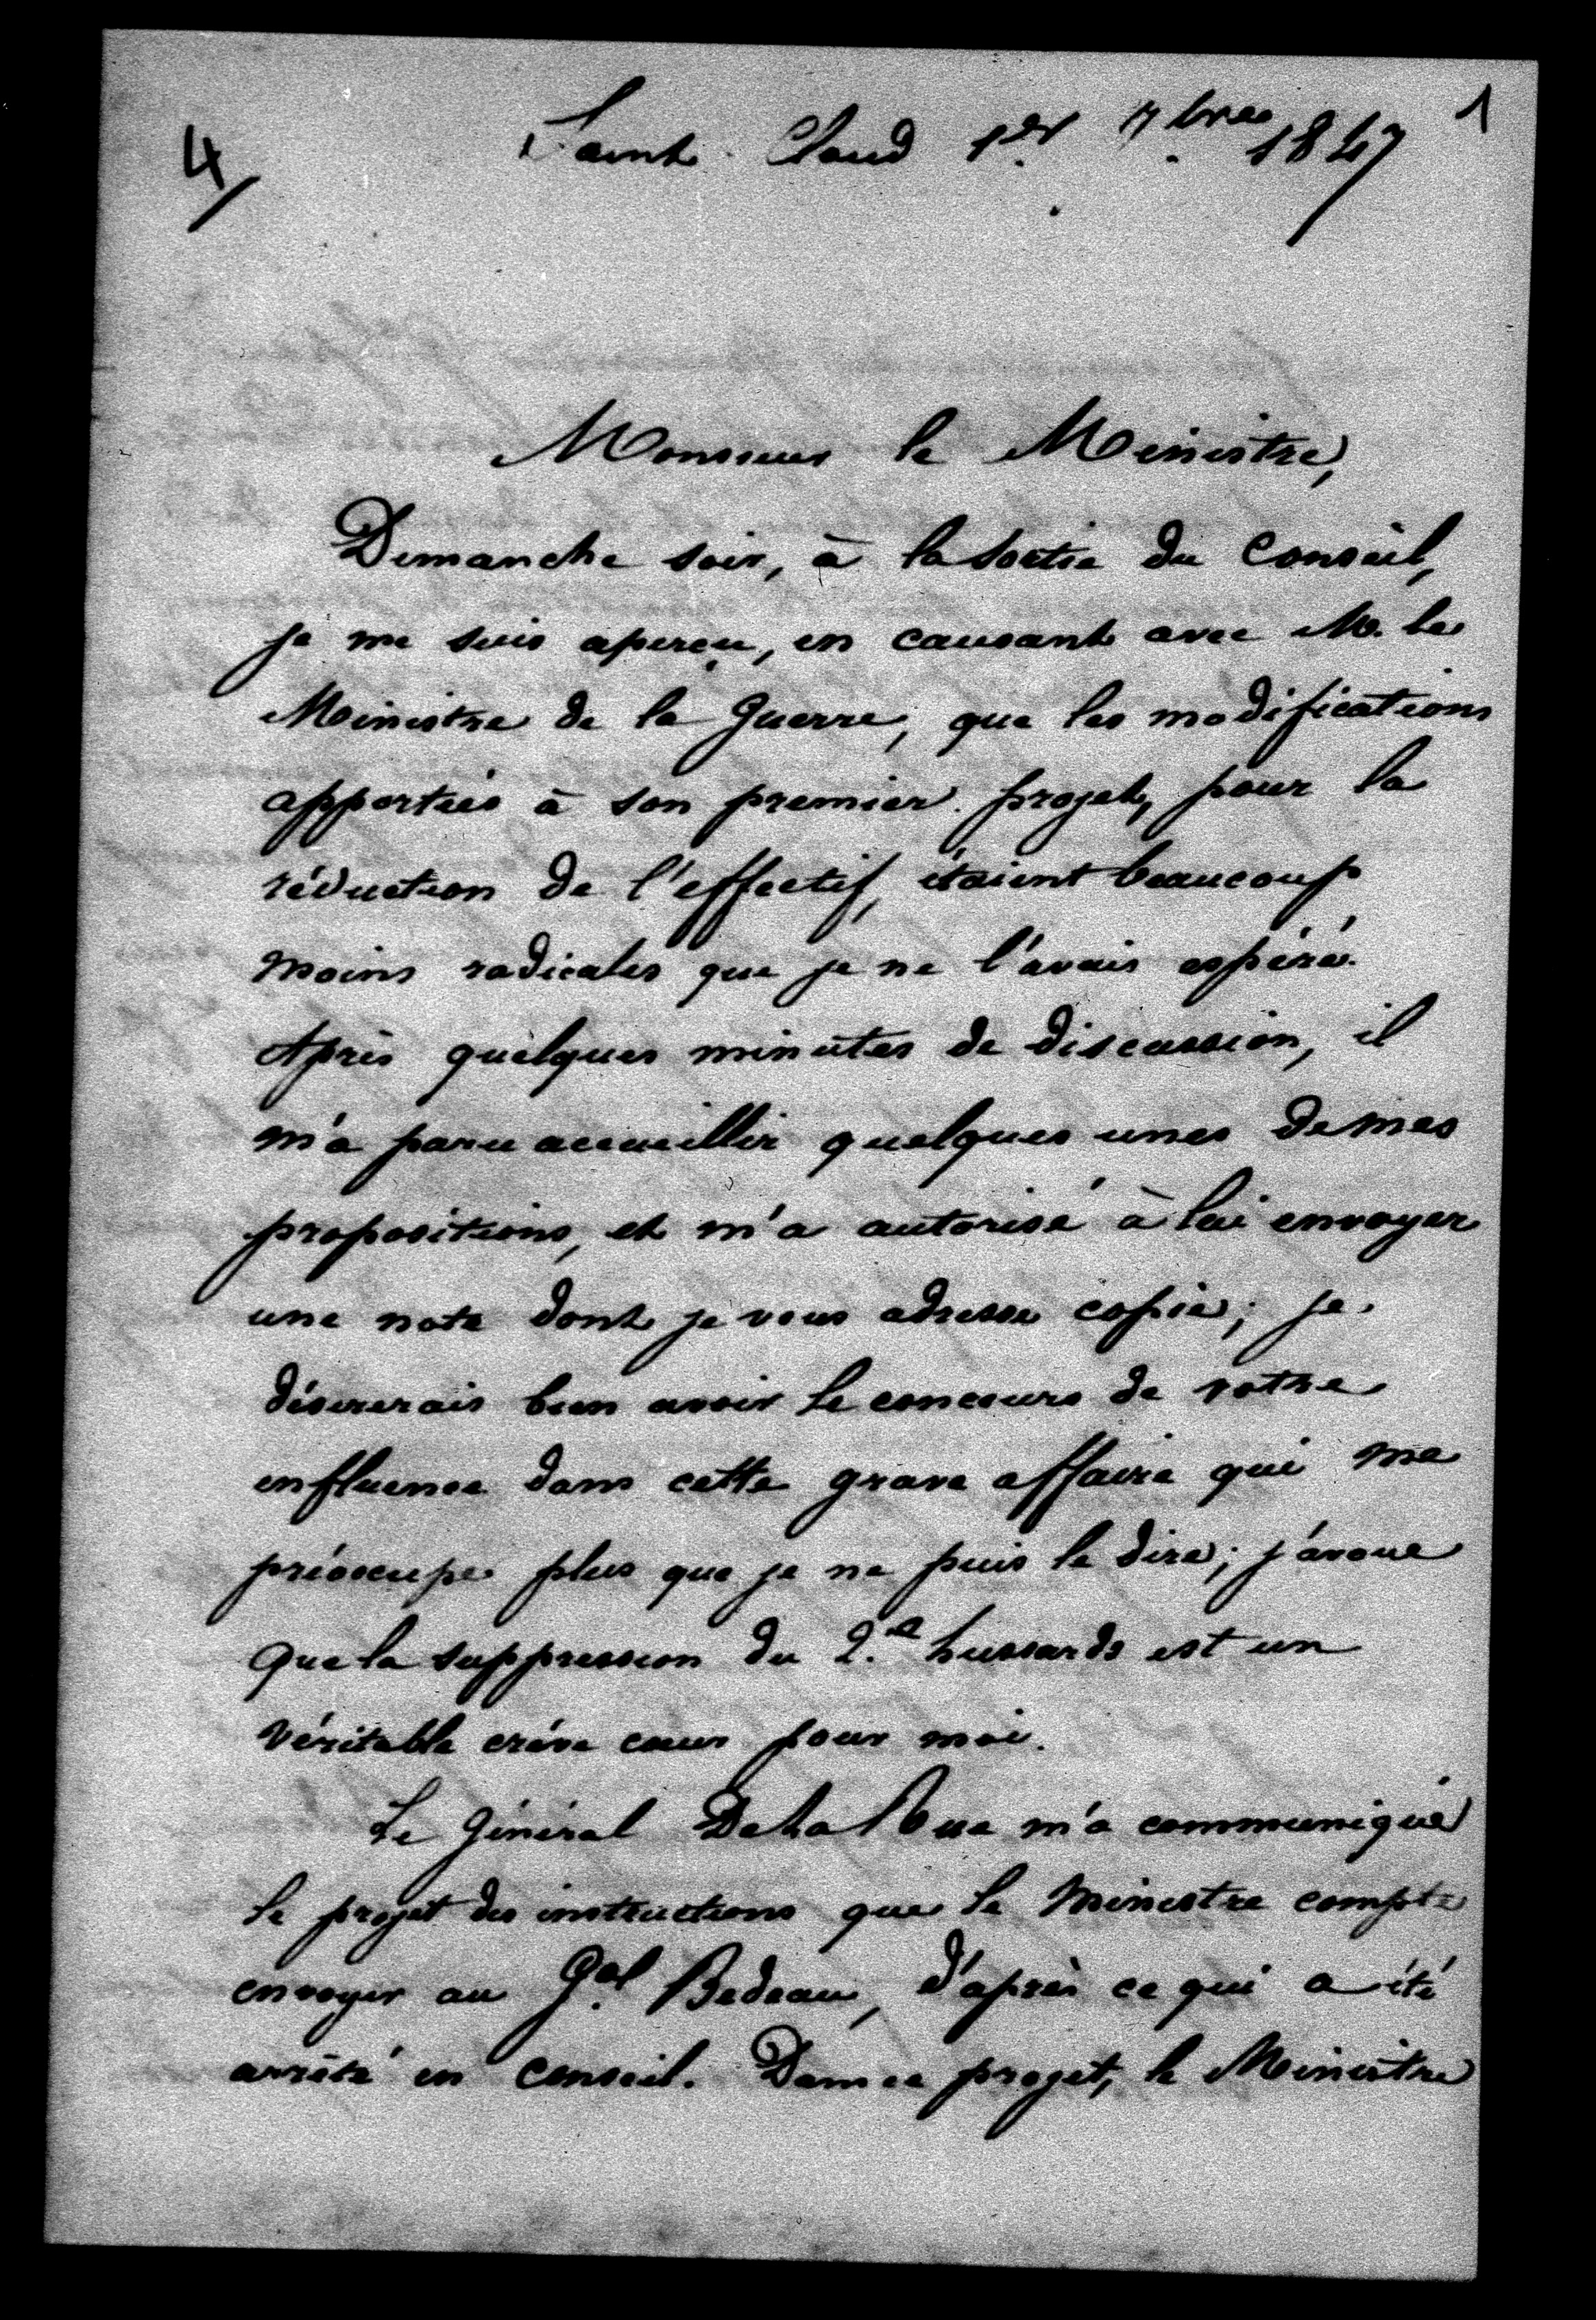 4/
1
Saint Cloud 1er 7bre 1847
Monsieur le Ministre,
Dimanche soir, à la sortie du Conseil,
je me suis aperçu, en causant avec M. le
Ministre de la Guerre, que les modifications
apportées à son premier projet, pour la
réduction de l'effectif, étaient beaucoup
moins radicales que je ne l'avais espéré.
Après quelques minutes de discussion, il
m'a paru accueillir quelques unes de mes
propositions, et m'a autorisé à lui envoyer
une note dont je vous adresse copie; je
désirerais bien avoir le concours de votre
influence dans cette grave affaire qui me
préoccupe plus que je ne puis le dire; j'avoue
que la suppression du 2.e hussards est un
véritable crève cœur pour moi.
Le Général De La Rue m'a communiqué
le projet des instructions que le Ministre compte
envoyer au Gal Bedeau, d'après ce qui a été
arrêté en Conseil. Dans ce projet, le Ministre